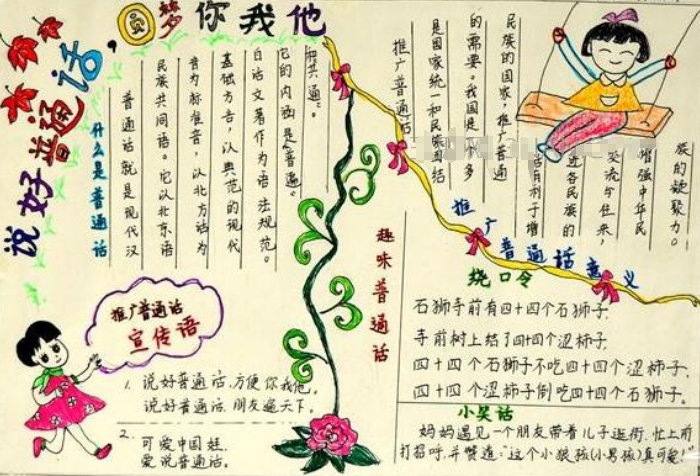 说好普通话，圆梦你我他
什么是普通话
普通话就是现代汉
民族共同语。它以北京语
音为标准音，以北方话为
基础方言，以典范的现代
白话文著作为语法规范。
它的内涵是普遍。
和共通。
推广普通话意义
推广普通话
是国家统一和民族团结
的需要。我国是 多
民族的国家，推广普通
话有利于增
进各民族的
交流与往来，
增强中华民
族的凝聚力。
推广普通话
宣传语
1. 说好普通话，方便你我他。
说好普通话，朋友遍天下。
2. 可爱中国娃，
爱说普通话。
趣味普通话
绕口令
石狮寺前有四十四个石狮子，
寺前树上结了四十四个涩柿子，
四十四个石狮子不吃四十四个涩柿子，
四十四个涩柿子倒吃四十四个石狮子。
小笑话
妈妈遇见一个朋友带着儿子逛街，忙上前
打招呼，并赞道：“这个小狼孩(小男孩)真可爱！”